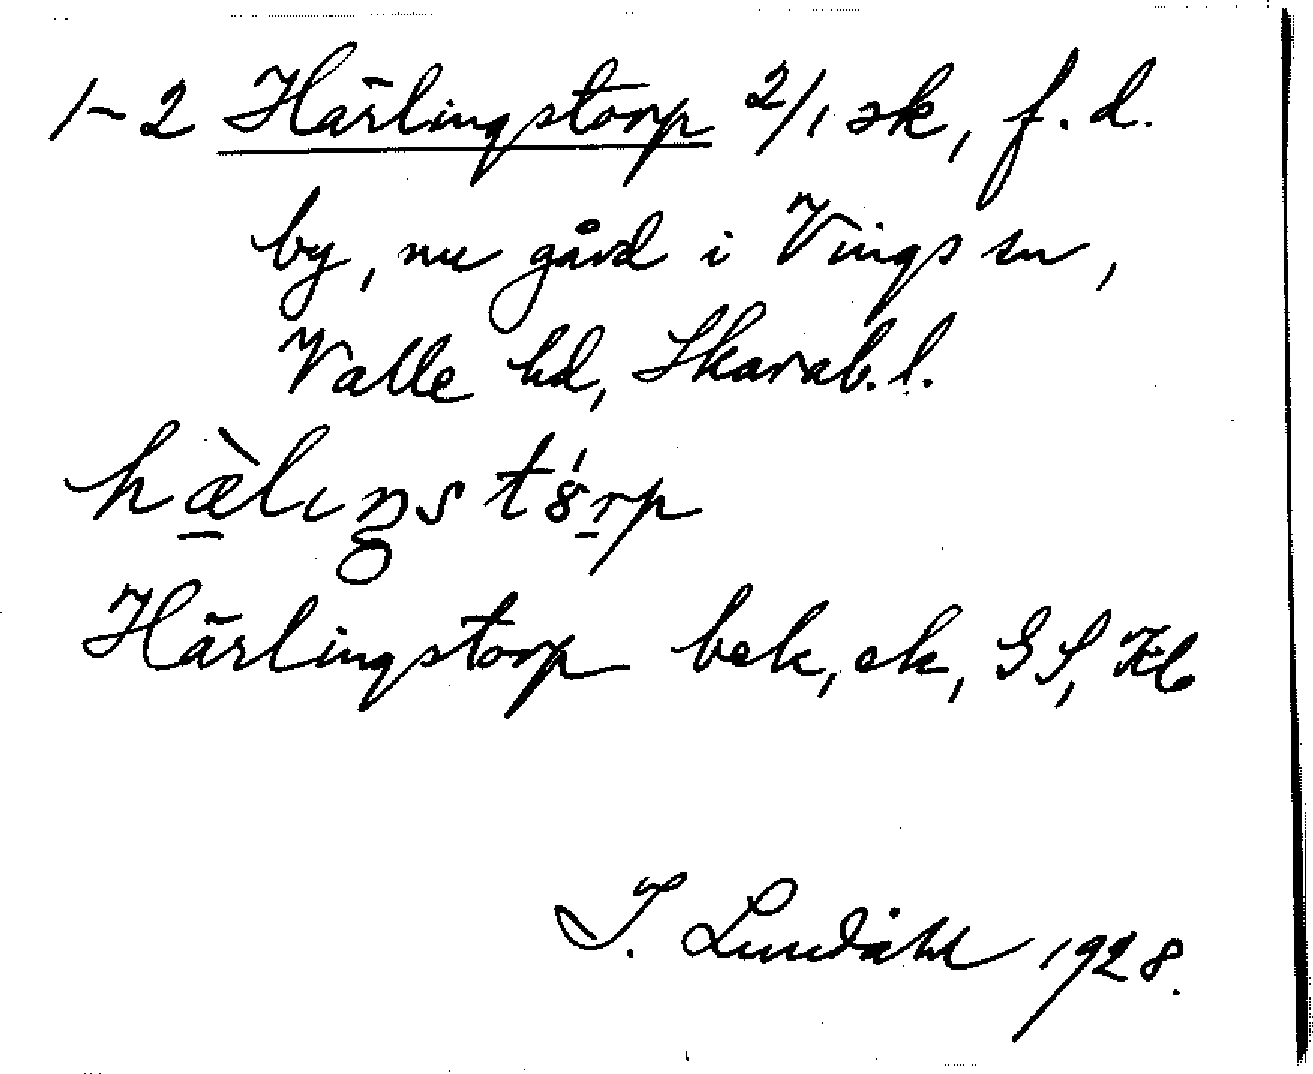 1-2 Härlingstorp 2/1 sk, f.d.
by, nu gård i Vings sn,
Valle hd, Skarab.l.
hæ̀lıŋst8́rp
Härlingstorp bek, ek, GS, Hb
I. Lundahl 1928.